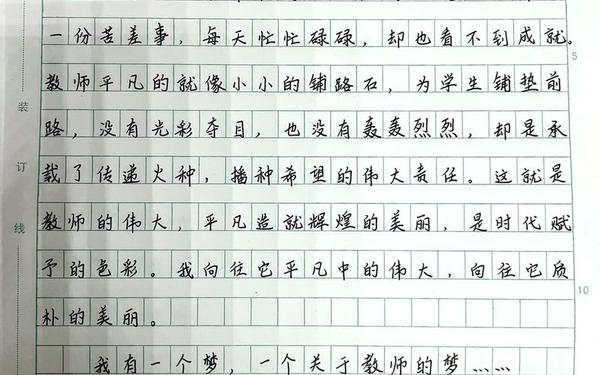 一份苦差事，每天忙忙碌碌，却也看不到成就。
5
教师平凡的就像小小的铺路石，为学生铺垫前
装
路，没有光彩夺目，也没有轰轰烈烈，却是承
订
载了传递火种，播种希望的伟大责任。这就是
线
教师的伟大，平凡造就辉煌的美丽，是时代赋
予的色彩。我向往它平凡中的伟大，向往它质
10
朴的美丽。
我有一个梦，一个关于教师的梦……